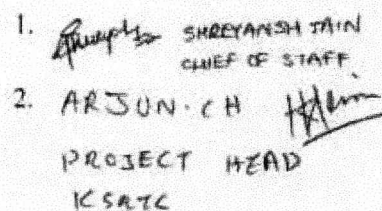 1. SHREYANSH JAIN
CHIEF OF STAFF
2. ARJUN.CH
PROJECT HEAD
KSRTC